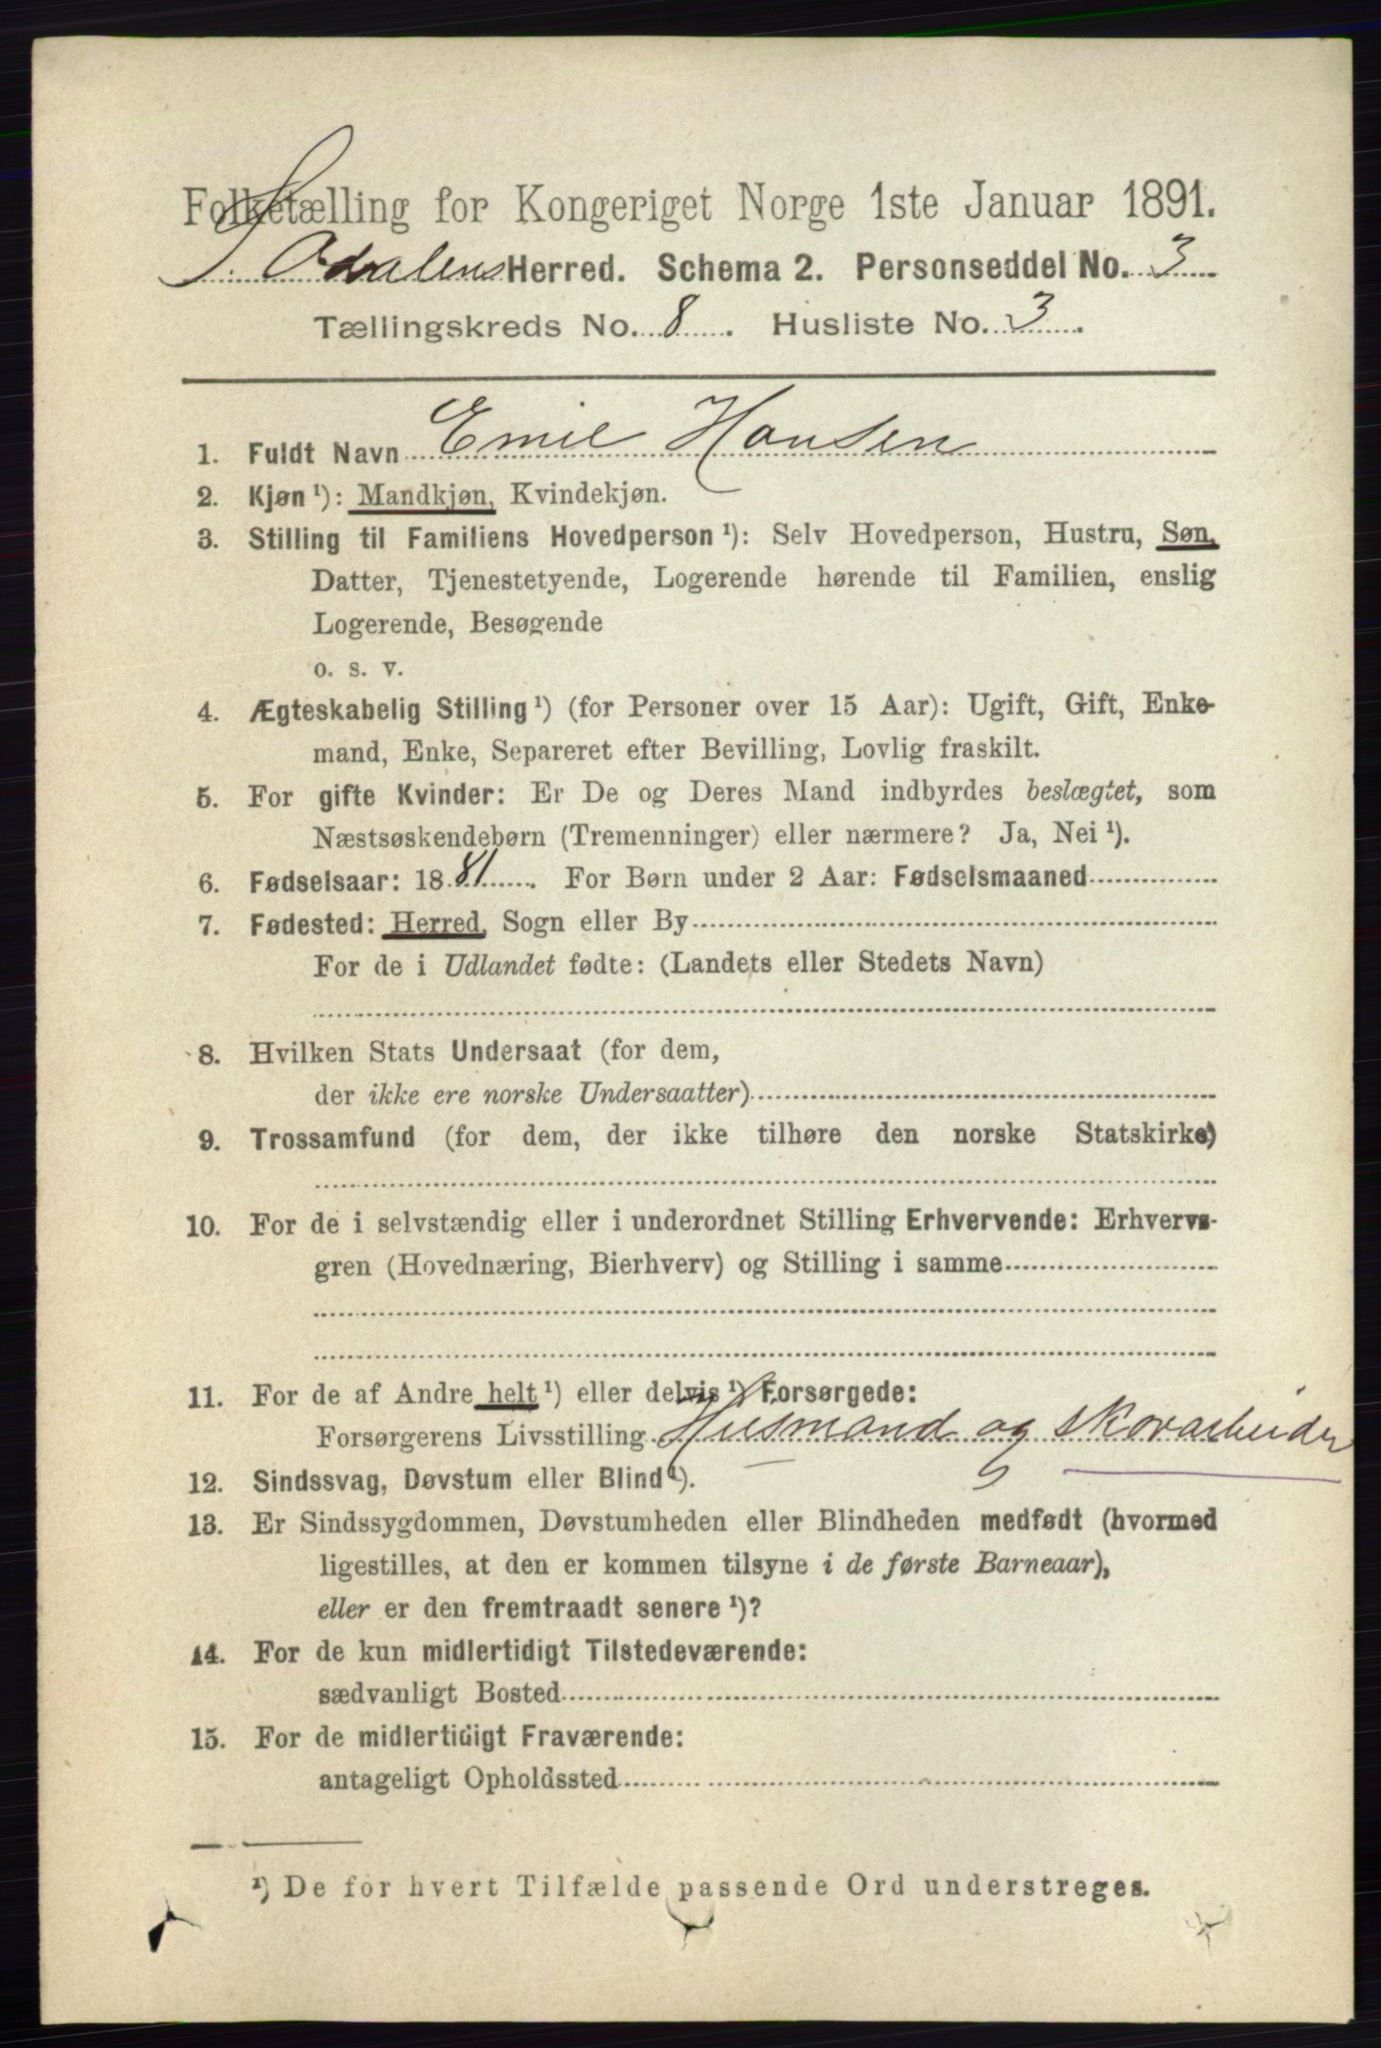 Folketælling for Kongeriget Norge 1ste Januar 1891.
S. Odalens Herred. Schema 2. Personseddel No. 3
Tællingskreds No. 8. Husliste No. 3.
1. Fuldt Navn Emil Hansen
2. Kjøn ¹): Mandkjøn, Kvindekjøn.
3. Stilling til Familiens Hovedperson ¹): Selv Hovedperson, Hustru, Søn,
Datter, Tjenestetyende, Logerende hørende til Familien, enslig
Logerende, Besøgende
o. s. v.
4. Ægteskabelig Stilling ¹) (for Personer over 15 Aar): Ugift, Gift, Enke-
mand, Enke, Separeret efter Bevilling, Lovlig fraskilt.
5. For gifte Kvinder: Er De og Deres Mand indbyrdes beslægtet, som
Næstsøskendebørn (Tremenninger) eller nærmere? Ja, Nei ¹).
6. Fødselsaar: 1881. For Børn under 2 Aar: Fødselsmaaned
7. Fødested: Herred, Sogn eller By
For de i Udlandet fødte: (Landets eller Stedets Navn)
8. Hvilken Stats Undersaat (for dem,
der ikke ere norske Undersaatter)
9. Trossamfund (for dem, der ikke tilhøre den norske Statskirke)
10. For de i selvstændig eller i underordnet Stilling Erhvervende: Erhvervs-
gren (Hovednæring, Bierhverv) og Stilling i samme
11. For de af Andre helt ¹) eller delvis ¹) Forsørgede:
Forsørgerens Livsstilling Husmand og skovarbeider
12. Sindssvag, Døvstum eller Blind ¹).
13. Er Sindssygdommen, Døvstumheden eller Blindheden medfødt (hvormed
ligestilles, at den er kommen tilsyne i de første Barneaar),
eller er den fremtraadt senere ¹)?
14. For de kun midlertidigt Tilstedeværende:
sædvanligt Bosted
15. For de midlertidigt Fraværende:
antageligt Opholdssted
¹) De for hvert Tilfælde passende Ord understreges.